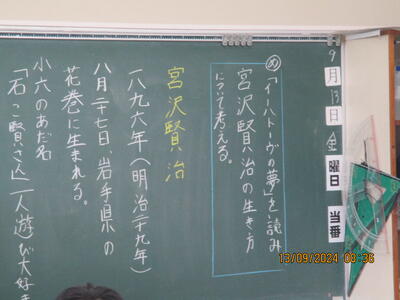 9月13日金曜日 当番
め 「イーハトーヴの夢」を読み
宮沢賢治の生き方
について考える。
宮沢賢治
一八九六年(明治二十九年)
八月二十七日、岩手県の
花巻に生まれる。
小六のあだ名
「石こ賢さん」一人遊び大好き
13/09/2024 08:36